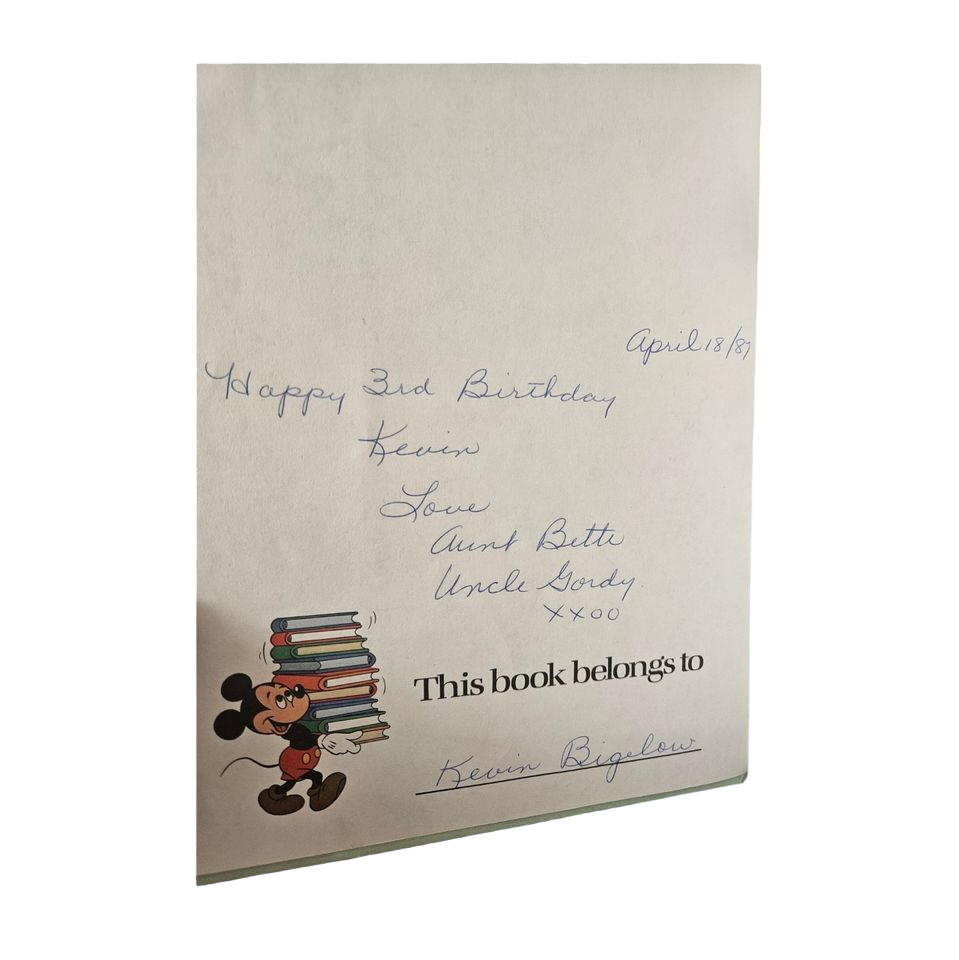 April 18/87
Happy 3rd Birthday
Kevin
Love
Aunt Bette
Uncle Gordy.
xxoo
This book belongs to
Kevin Bigelow